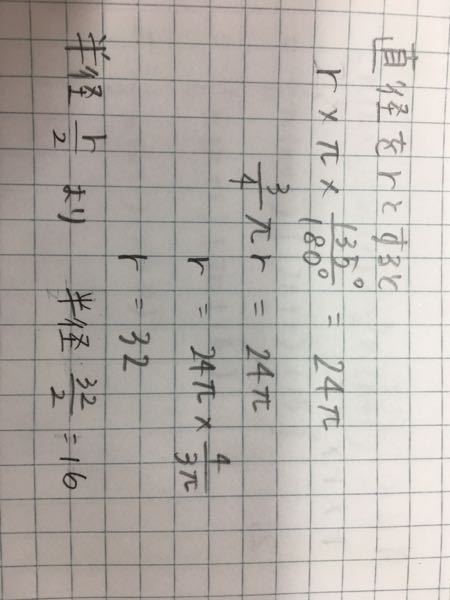 直径をrとすると
r × π × 135°/180° = 24π
3/4 πr = 24π
r = 24π × 4/3π
r = 32
半径 r/2 より 半径 32/2 = 16